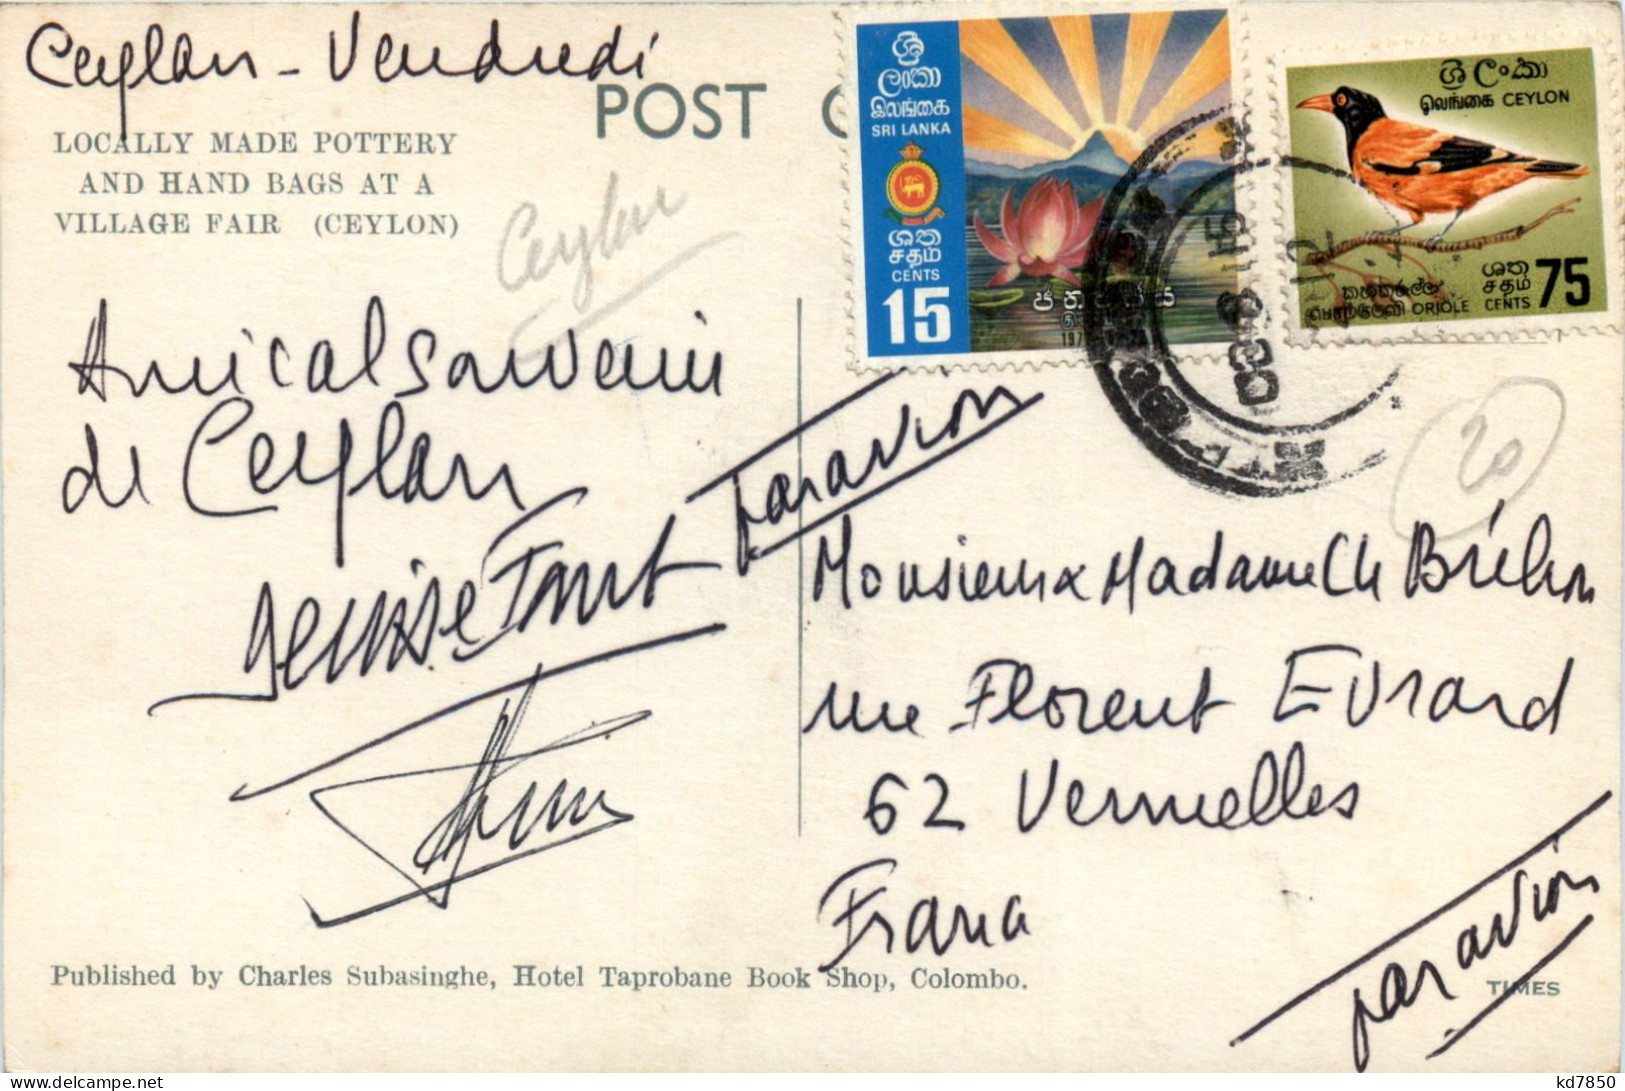 Ceylan - Vendredi
POST C
LOCALLY MADE POTTERY
AND HAND BAGS AT A
VILLAGE FAIR (CEYLON)
Ceylan
ශ්‍රී ලංකා
இலங்கை
SRI LANKA
ශත
சதம்
CENTS
15
ශ්‍රී ලංකා
இலங்கை CEYLON
ශත
சதம்
ORIOLE CENTS 75
20
Amical souvenir
de Ceylan
Denise Fant
par avion
Monsieur x Madame Ch Bréhon
rue Florent Evrard
62 Vermelles
France
par avion
Published by Charles Subasinghe, Hotel Taprobane Book Shop, Colombo.
TIMES
kd7850